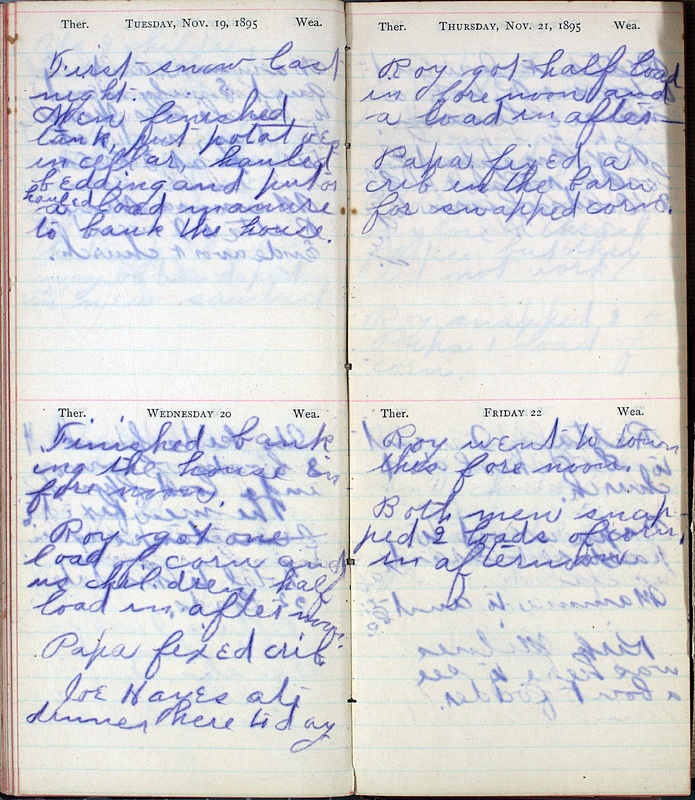 Ther. TUESDAY, NOV. 19, 1895 Wea.
First snow last
night.
Men finished
tank, put potatoes
in cellar, hauled
bedding and put on
hauled
a load manure
to bank the house.
Ther. WEDNESDAY 20 Wea.
Finished bank
ing the house in
fore noon.
Roy got one
load of corn and
us children half
load in afternoon.
Papa fixed crib
Joe Hayes at
dinner here today
Ther. THURSDAY, NOV. 21, 1895 Wea.
Roy got half load
in forenoon and
a load in after-
Papa fixed a
crib in the barn
for snapped corn.
Ther. FRIDAY 22 Wea.
Roy went to town
this fore noon.
Both men snap-
ped 2 loads of corn
in afternoon